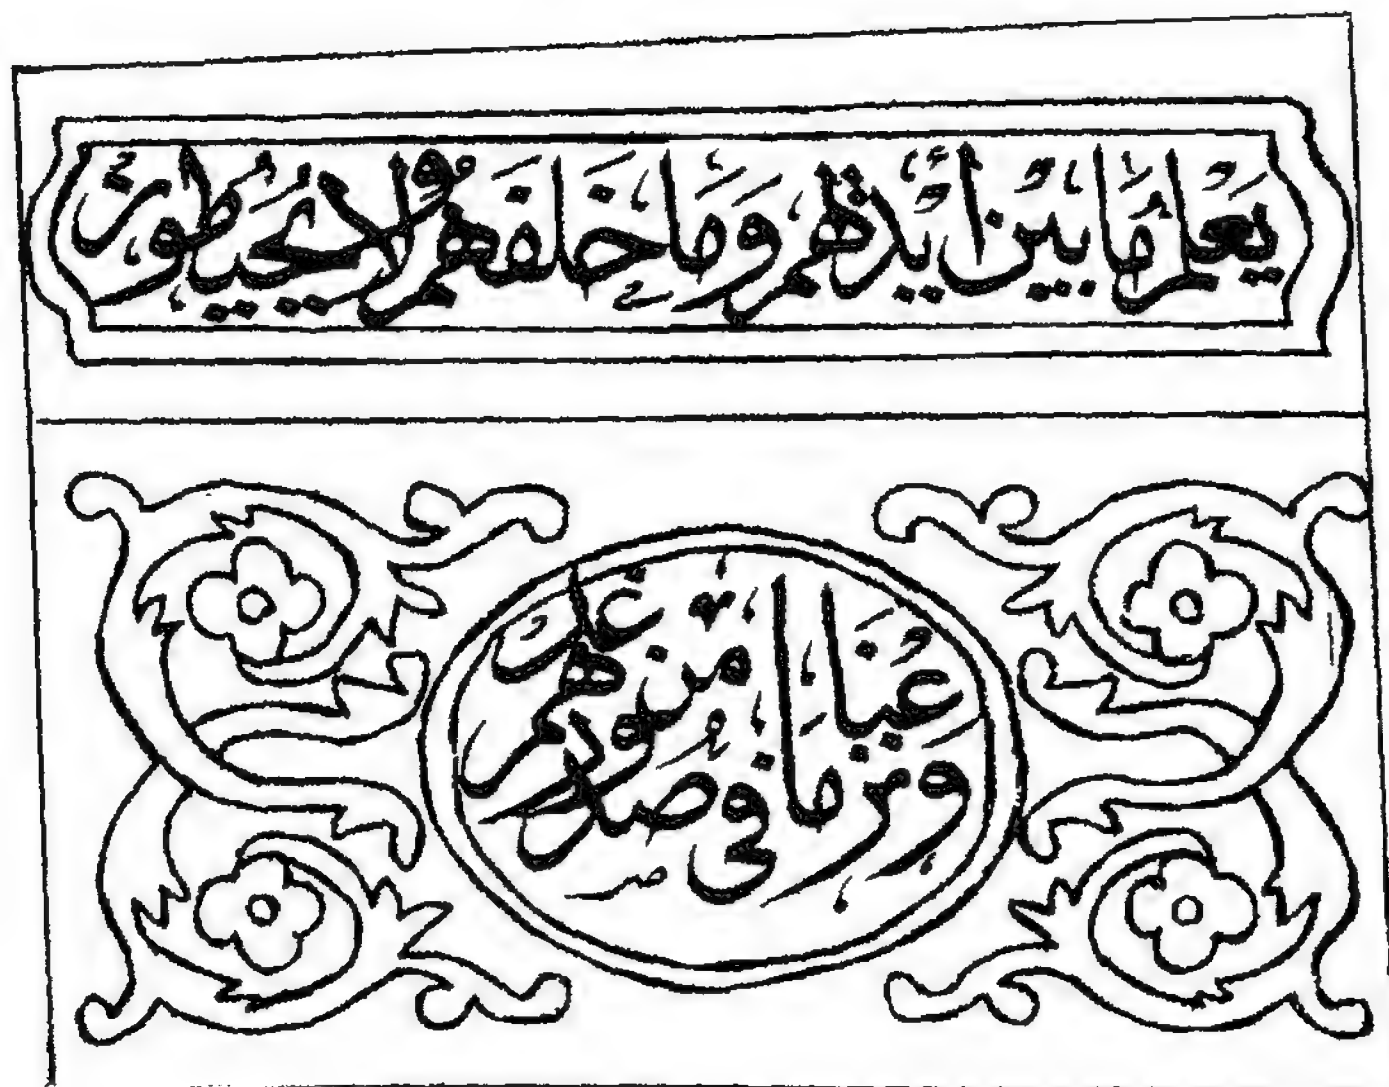 يعلم ما بين ايديهم وما خلفهم ولا يحيطون
ونزعنا ما في صدورهم من غل